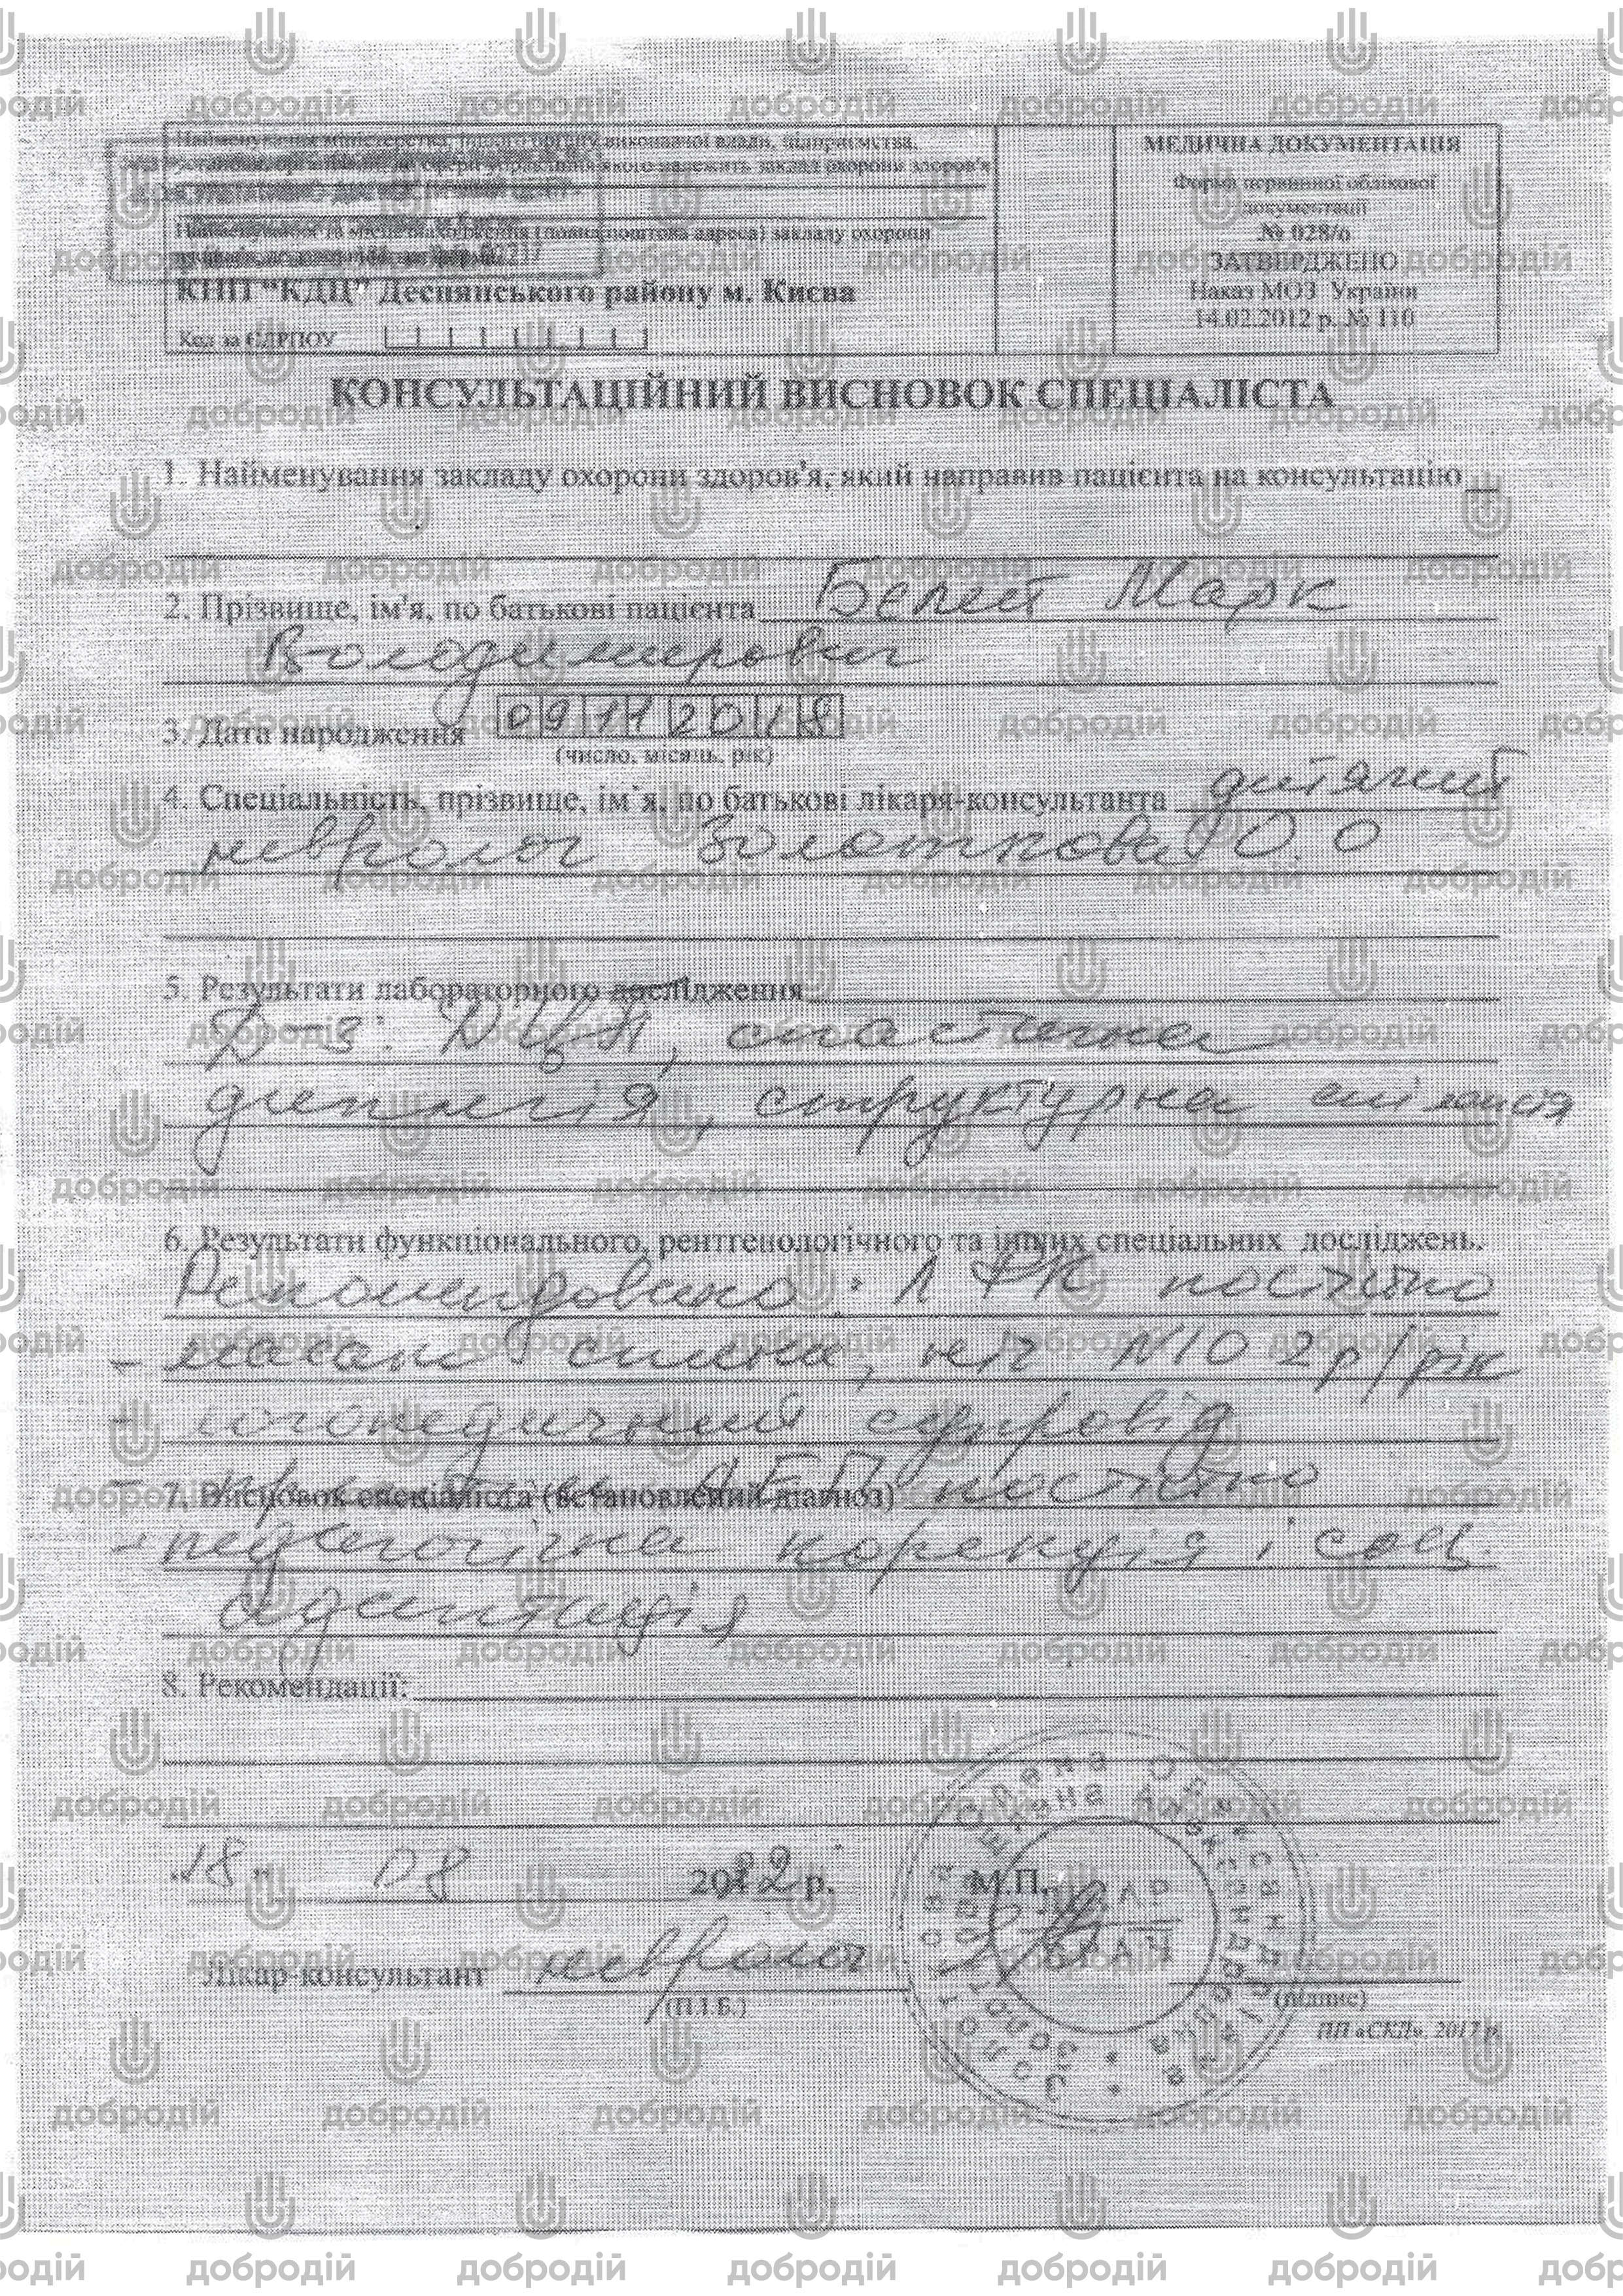 Найменування міністерства, іншого органу виконавчої влади, підприємства,
установи, організації, до сфери управління якого належить заклад охорони здоров'я
Найменування та місцезнаходження (повна поштова адреса) закладу охорони
КНП "КДЦ" Деснянського району м. Києва
Код за ЄДРПОУ
МЕДИЧНА ДОКУМЕНТАЦІЯ
Форма первинної облікової
документації
№ 028/о
ЗАТВЕРДЖЕНО
Наказ МОЗ України
14.02.2012 р. № 110
КОНСУЛЬТАЦІЙНИЙ ВИСНОВОК СПЕЦІАЛІСТА
1. Найменування закладу охорони здоров'я, який направив пацієнта на консультацію
2. Прізвище, ім'я, по батькові пацієнта Белей Марк
Володимирович
3. Дата народження 09112018
(число, місяць, рік)
4. Спеціальність, прізвище, ім'я, по батькові лікаря-консультанта дитячий
невролог Золоткова О.О
5. Результати лабораторного дослідження
Д-з: ДЦП, спастична
диплегія, структурна епілепсія
6. Результати функціонального, рентгенологічного та інших спеціальних досліджень.
Рекомендовано: ЛФК постійно
- масаж спини, ніг N10 2р/рік
- логопедичний супровід
7. Висновок спеціаліста (встановлений діагноз)
- АЕП постійно
- педагогічна корекція і соц.
адаптація
8. Рекомендації:
"18" 08 2022 р. М.П.
Лікар-консультант невролог
(П.І.Б.) (підпис)
ПП «СКД». 2017 р.
ЛІКАР
добродій